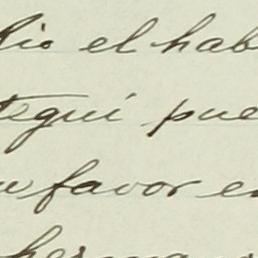 dio el hab
tegui pue
u favor en
herma